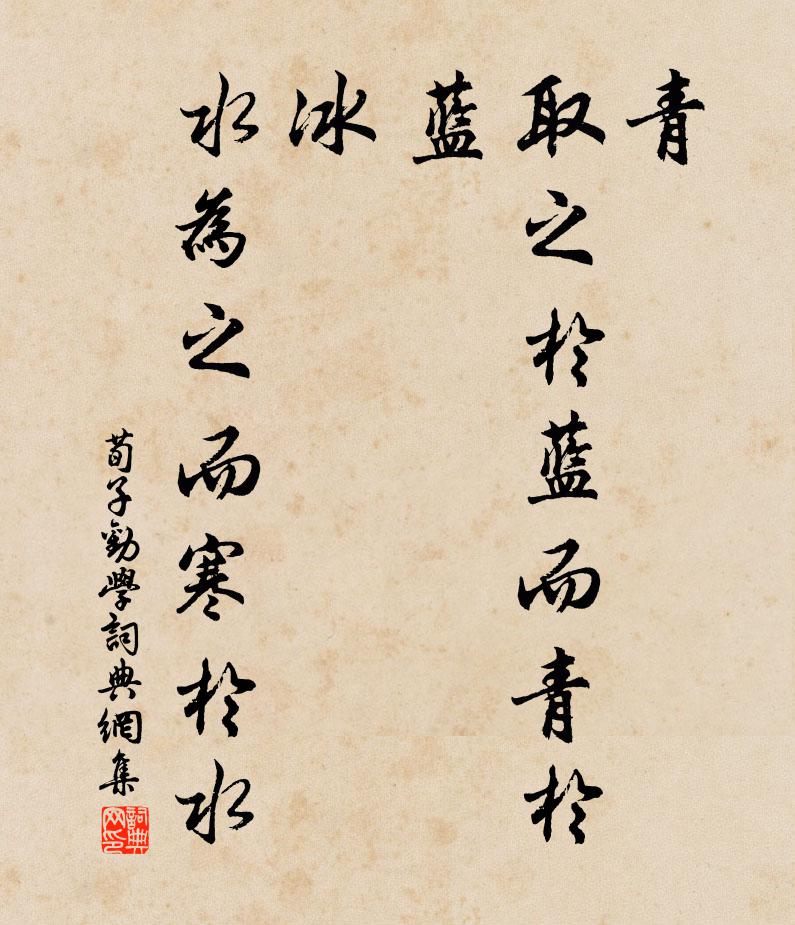 青
取之於蓝而青於
蓝
冰
水為之而寒於水
荀子勸學詞典網集
詞典
网印